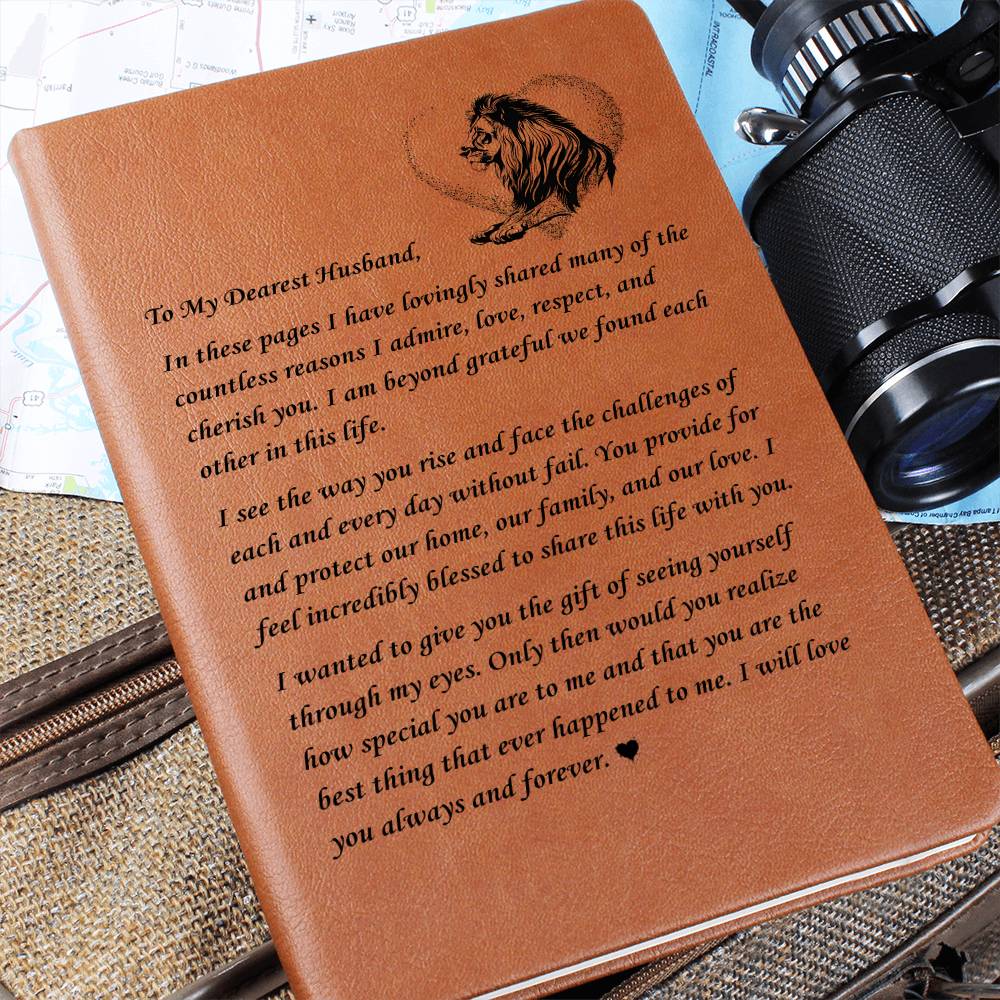 To My Dearest Husband,
In these pages I have lovingly shared many of the
countless reasons I admire, love, respect, and
cherish you. I am beyond grateful we found each
other in this life.
I see the way you rise and face the challenges of
each and every day without fail. You provide for
and protect our home, our family, and our love. I
feel incredibly blessed to share this life with you.
I wanted to give you the gift of seeing yourself
through my eyes. Only then would you realize
how special you are to me and that you are the
best thing that ever happened to me. I will love
you always and forever. ♥
Parrish
Buffalo Creek
Golf Course
Woodlands G C
Airport
Ranch
Dixie Sky
41
INTRACOASTAL
Little
41
Park